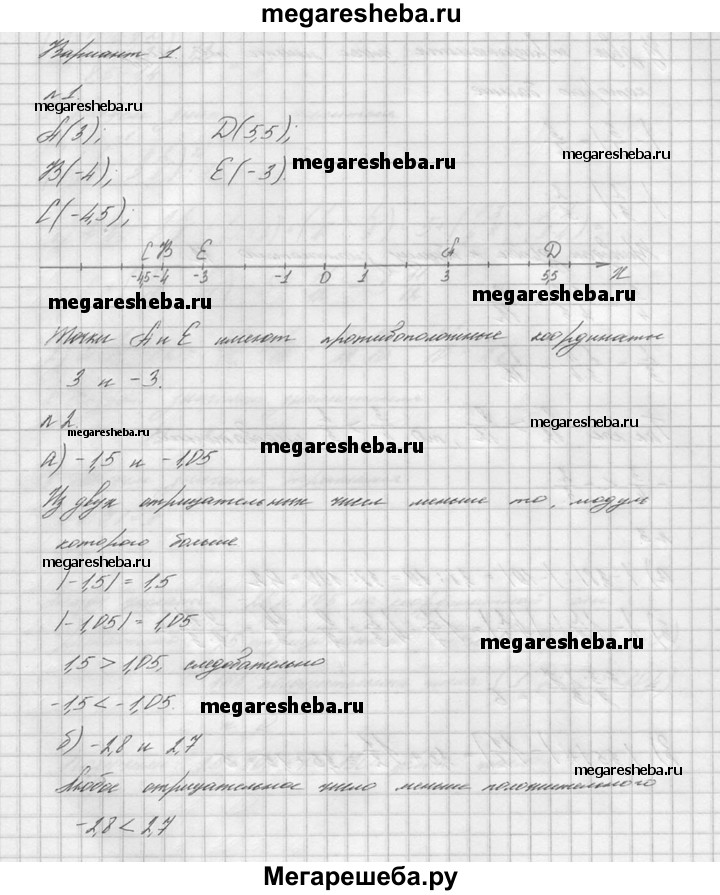 megaresheba.ru
Вариант 1.
№1.
A(3); D(5,5);
megaresheba.ru
megaresheba.ru
B(-4); E(-3).
C(-4,5);
C B E A D
-4,5 -4 -3 -1 0 1 3 5,5 x
megaresheba.ru
megaresheba.ru
Точки A и E имеют противоположные координаты
3 и -3.
№2.
megaresheba.ru
megaresheba.ru
megaresheba.ru
а) -1,5 и -1,05
Из двух отрицательных чисел меньше то, модуль
которого больше
megaresheba.ru
|-1,5| = 1,5
|-1,05| = 1,05
megaresheba.ru
1,5 > 1,05, следовательно
-1,5 < -1,05.
megaresheba.ru
б) -2,8 и 2,7
megaresheba.ru
Любое отрицательное число меньше положительного
-2,8 < 2,7
Мегарешеба.ру